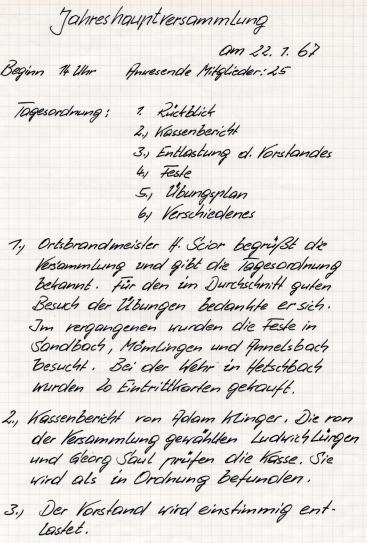 Jahreshauptversammlung
am 22. 1. 67
Beginn 14 Uhr Anwesende Mitglieder: 25
Tagesordnung: 1. Rückblick
2., Kassenbericht
3., Entlastung d. Vorstandes
4., Feste
5., Übungsplan
6., Verschiedenes
1., Ortsbrandmeister H. Scior begrüßt die
Versammlung und gibt die Tagesordnung
bekannt. Für den im Durchschnitt guten
Besuch der Übungen bedankte er sich.
Im vergangenen wurden die Feste in
Sandbach, Mömlingen und Annelsbach
besucht. Bei der Wehr in Hetschbach
wurden 20 Eintrittkarten gekauft.
2., Kassenbericht von Adam Klinger. Die von
der Versammlung gewählten Ludwich Lürgen
und Georg Saul prüfen die Kasse. Sie
wird als in Ordnung befunden.
3., Der Vorstand wird einstimmig ent-
lastet.